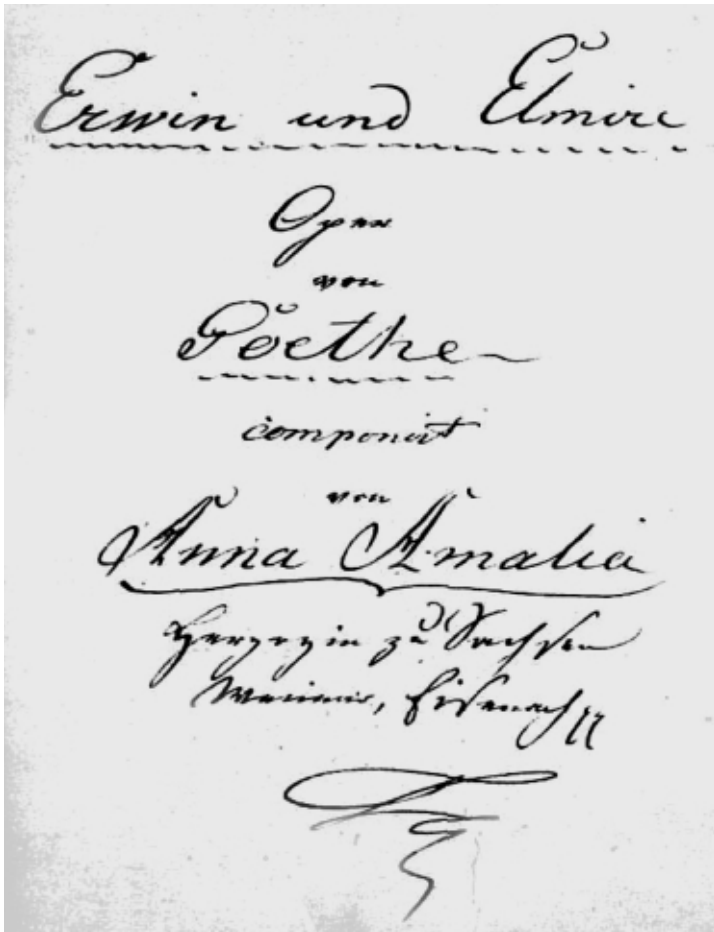 Erwin und Elmire
Oper
von
Goethe
componirt
von
Anna Amalia
Herzogin zu Sachsen
Weimar, Eisenach